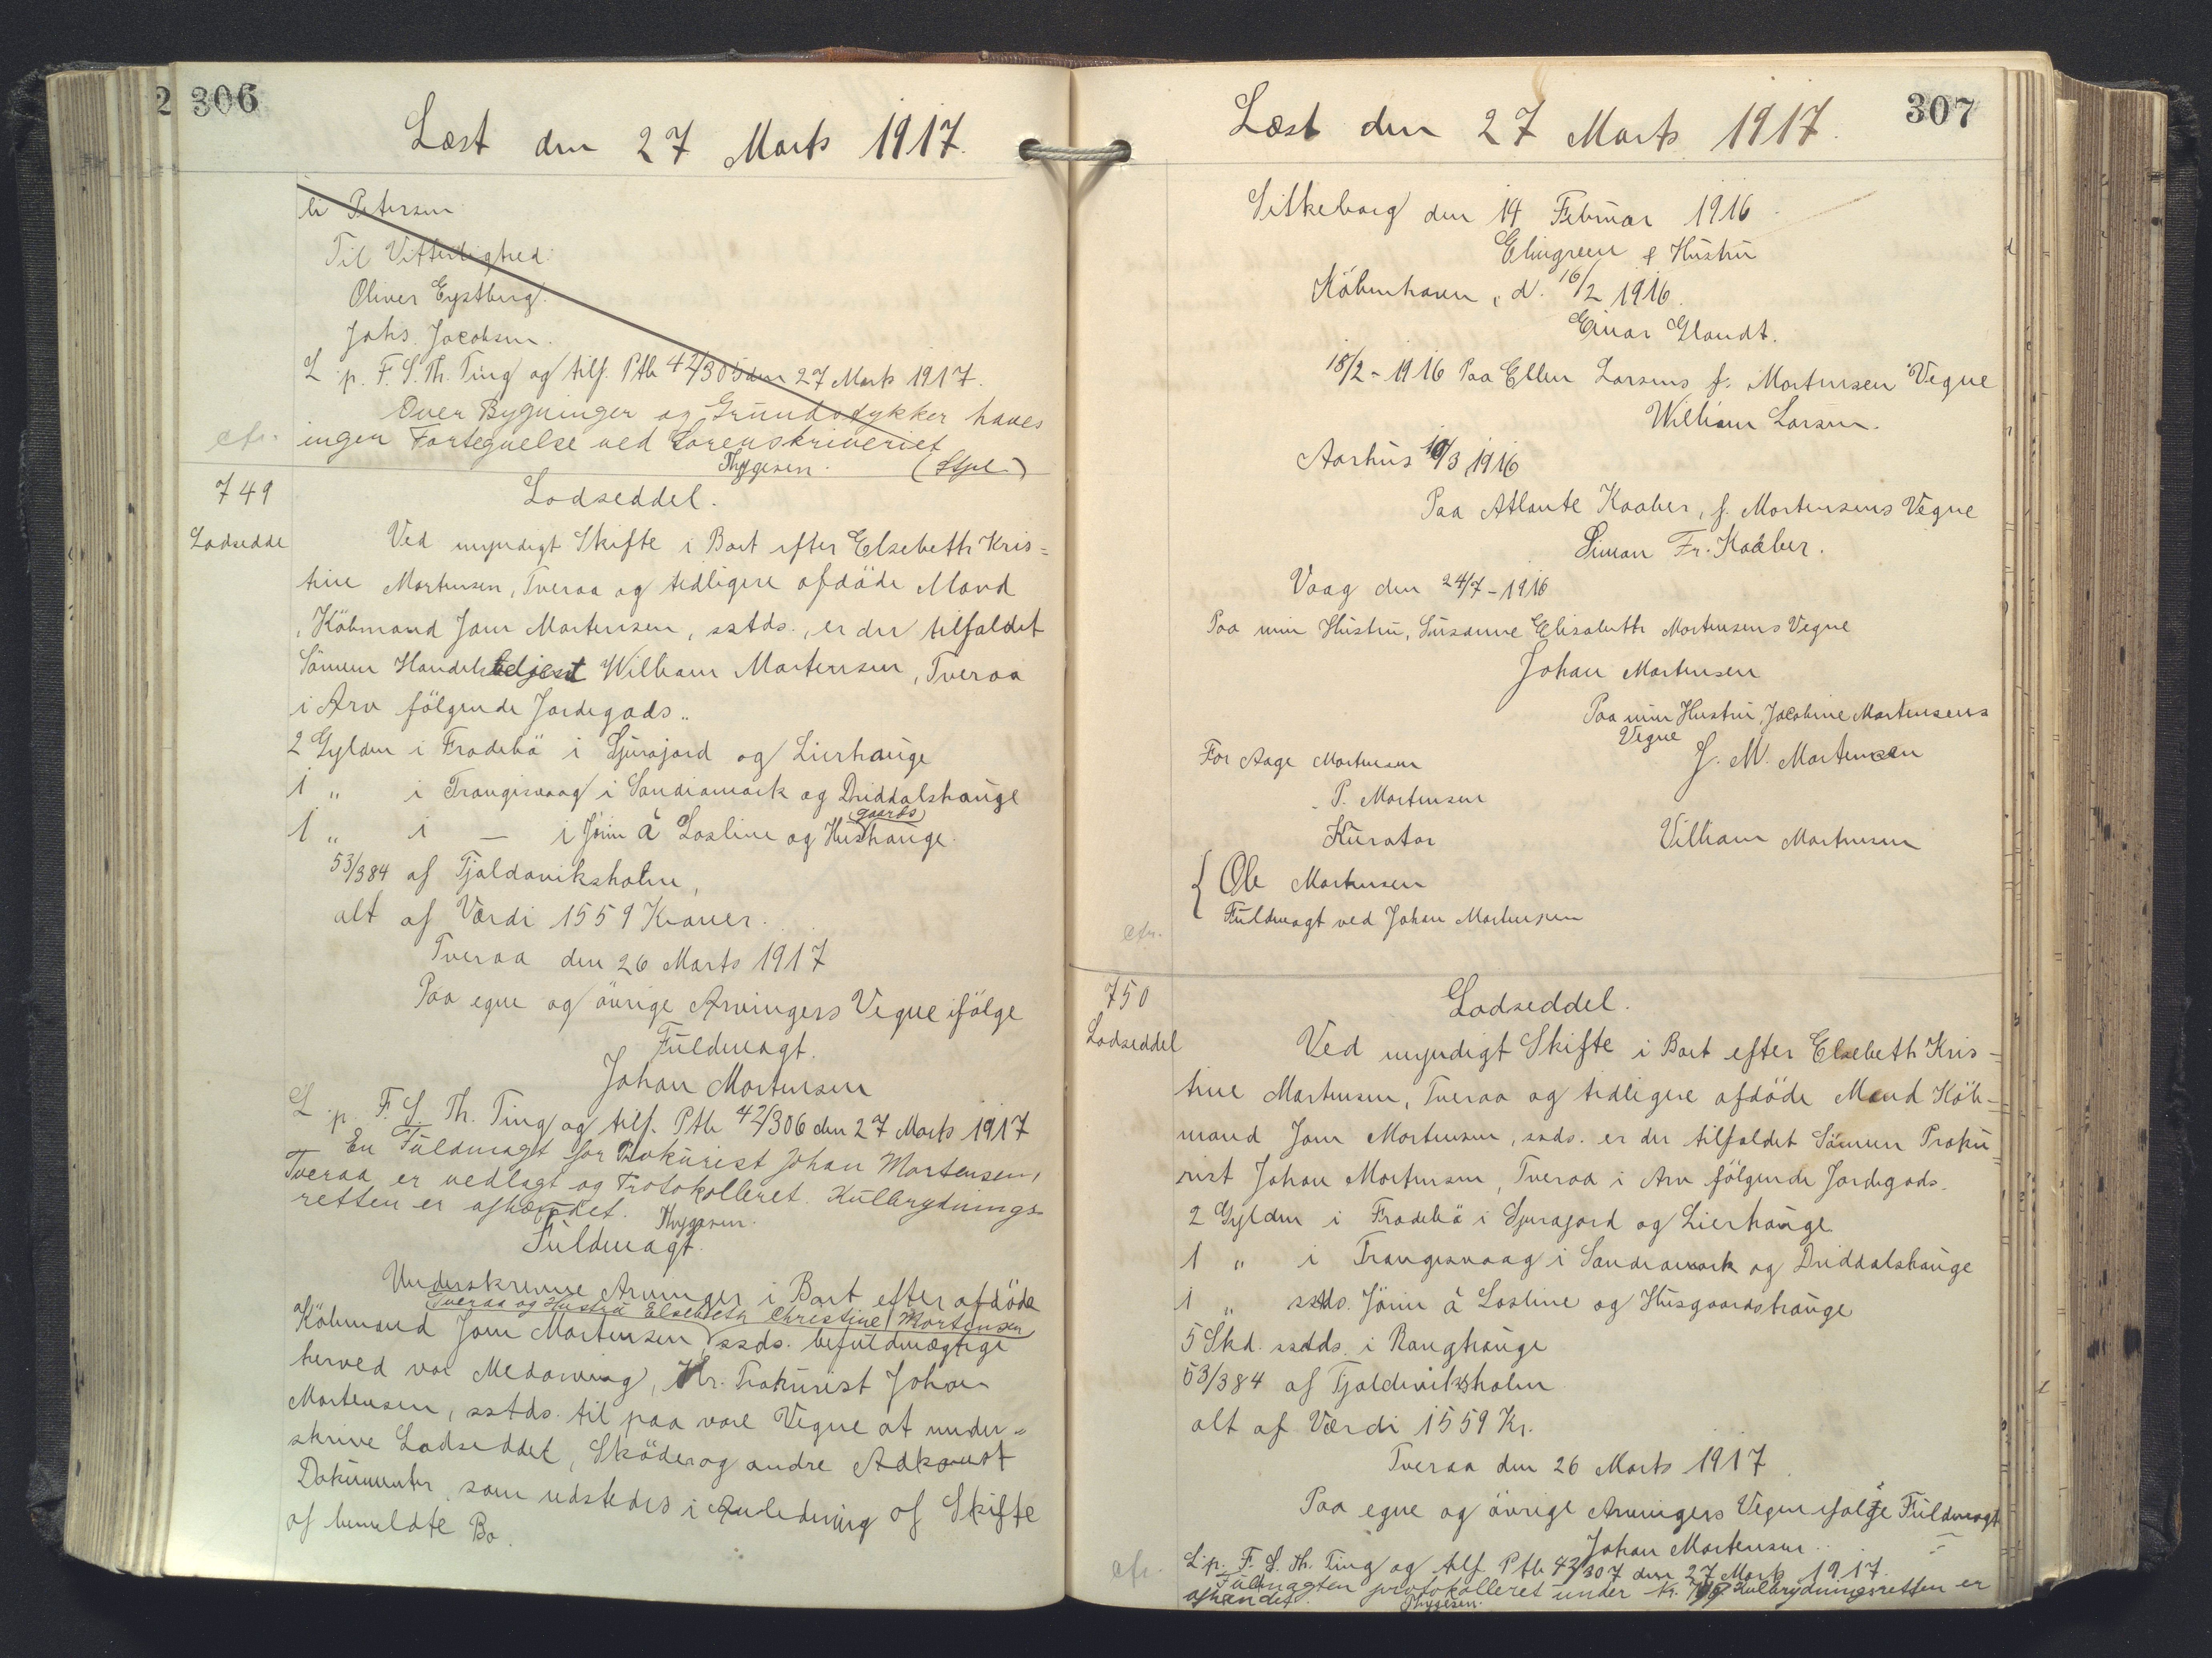 306
Læst den 27 Marts 1917.
li Petersen
Til Vitterlighed:
Oliver Eystberg.
Johs. Jacobsen.
L. p. F. S. Th. Ting og tilf. Ptk 42/305 den 27 Marts 1917.
Over Bygninger og Grundstykker haves
cfr. ingen Fortegnelse ved Sorenskriveriet
Thygesen. (Stpl.)
749
Lodsedde
Lodseddel.
Ved myndigt Skifte i Boet efter Elsebeth Kris=
tine Mortensen, Tveraa og tidligere afdöde Mand
, Köbmand Jans Mortensen, sstds., er der tilfaldet
Sönnen Handelsbetjent William Mortensen, Tveraa
i Arv fölgende Jordegods..
2 Gylden i Frodebö i Sjurajord og Lierhauge
1 " i Trangisvaag i Sandiamark og Driddalshauge
1 " i — i Jörin á Losline og Husgaardshauge.
53/384 af Tjaldaviksholm,
alt af Værdi 1559 Kroner.
Tveraa den 26 Marts 1917
Paa egne og övrige Arvingers Vegne ifölge
Fuldmagt.
Johan Mortensen
L. p. F. S. Th. Ting og tilf. Ptk 42/306 den 27 Marts 1917
En Fuldmagt for Prokurist Johan Mortensen,
Tveraa er vedlagt og Protokolleret. Kulbrydnings-
retten er afhændet. Thygesen.
Fuldmagt.
Underskrevne Arvinger i Boet efter afdöde
Tveraa og Hustru Elsebeth Christine Mortensen
Köbmand Jans Mortensen, ssds. befuldmægtige
herved vor Medarving, Hr. Prokurist Johan
Mortensen, sstds. til paa vore Vegne at under=
skrive Lodseddel, Sköder og andre Adkomst
Dokumenter, som udstedes i Anledning af Skifte
af bemeldte Bo.
307
Læst den 27 Marts 1917.
Silkeborg den 14 Februar 1916
Elingreen & Hustru
Köbenhavn, d. 16/2 1916.
Einar Glandt.
18/2-1916 Paa Ellen Larsens f. Mortensen Vegne
William Larsen.
Aarhus 10/3 1916
Paa Atlante Kaaber, f. Mortensens Vegne
Simon Fr. Kaaber.
Vaag den 24/7-1916
Paa min Hustru, Susanne Elisabeth Mortensens Vegne
Johan Mortensen
Paa min Hustru, Jacobine Mortensens
Vegne
J. M. Mortensen
For Aage Mortensen
P. Mortensen
Kurator
Villiam Mortensen
{ Ole Mortensen
Fuldmagt ved Johan Mortensen
cfr.
750
Lodseddel
Lodseddel.
Ved myndigt Skifte i Boet efter Elsebeth Kris=
tine Mortensen, Tveraa og tidligere afdöde Mand Köb-
mand Jans Mortensen, ssds. er der tilfaldet Sönnen Proku=
rist Johan Mortensen, Tveraa i Arv fölgende Jordegods.
2 Gylden i Frodebö i Sjurajord og Lierhauge
1 " i Trangisvaag i Sandiamark og Driddalshauge
1 " sstds. Jörin á Losline og Husgaardshauge
5 Skd. sstds. i Ranghauge
53/384 af Tjaldaviksholm
alt af Værdi 1559 Kr.
Tveraa den 26 Marts 1917
Paa egne og övrige Arvingers Vegne ifölge Fuldmagt
Johan Mortensen..
cfr. L. p. F. S. Th. Ting og tilf. Ptk 42/307 den 27 Marts 1917.
Fuldmagten protokolleret under Nr. 749. Kulbrydningsretten er
afhændet. Thygesen.